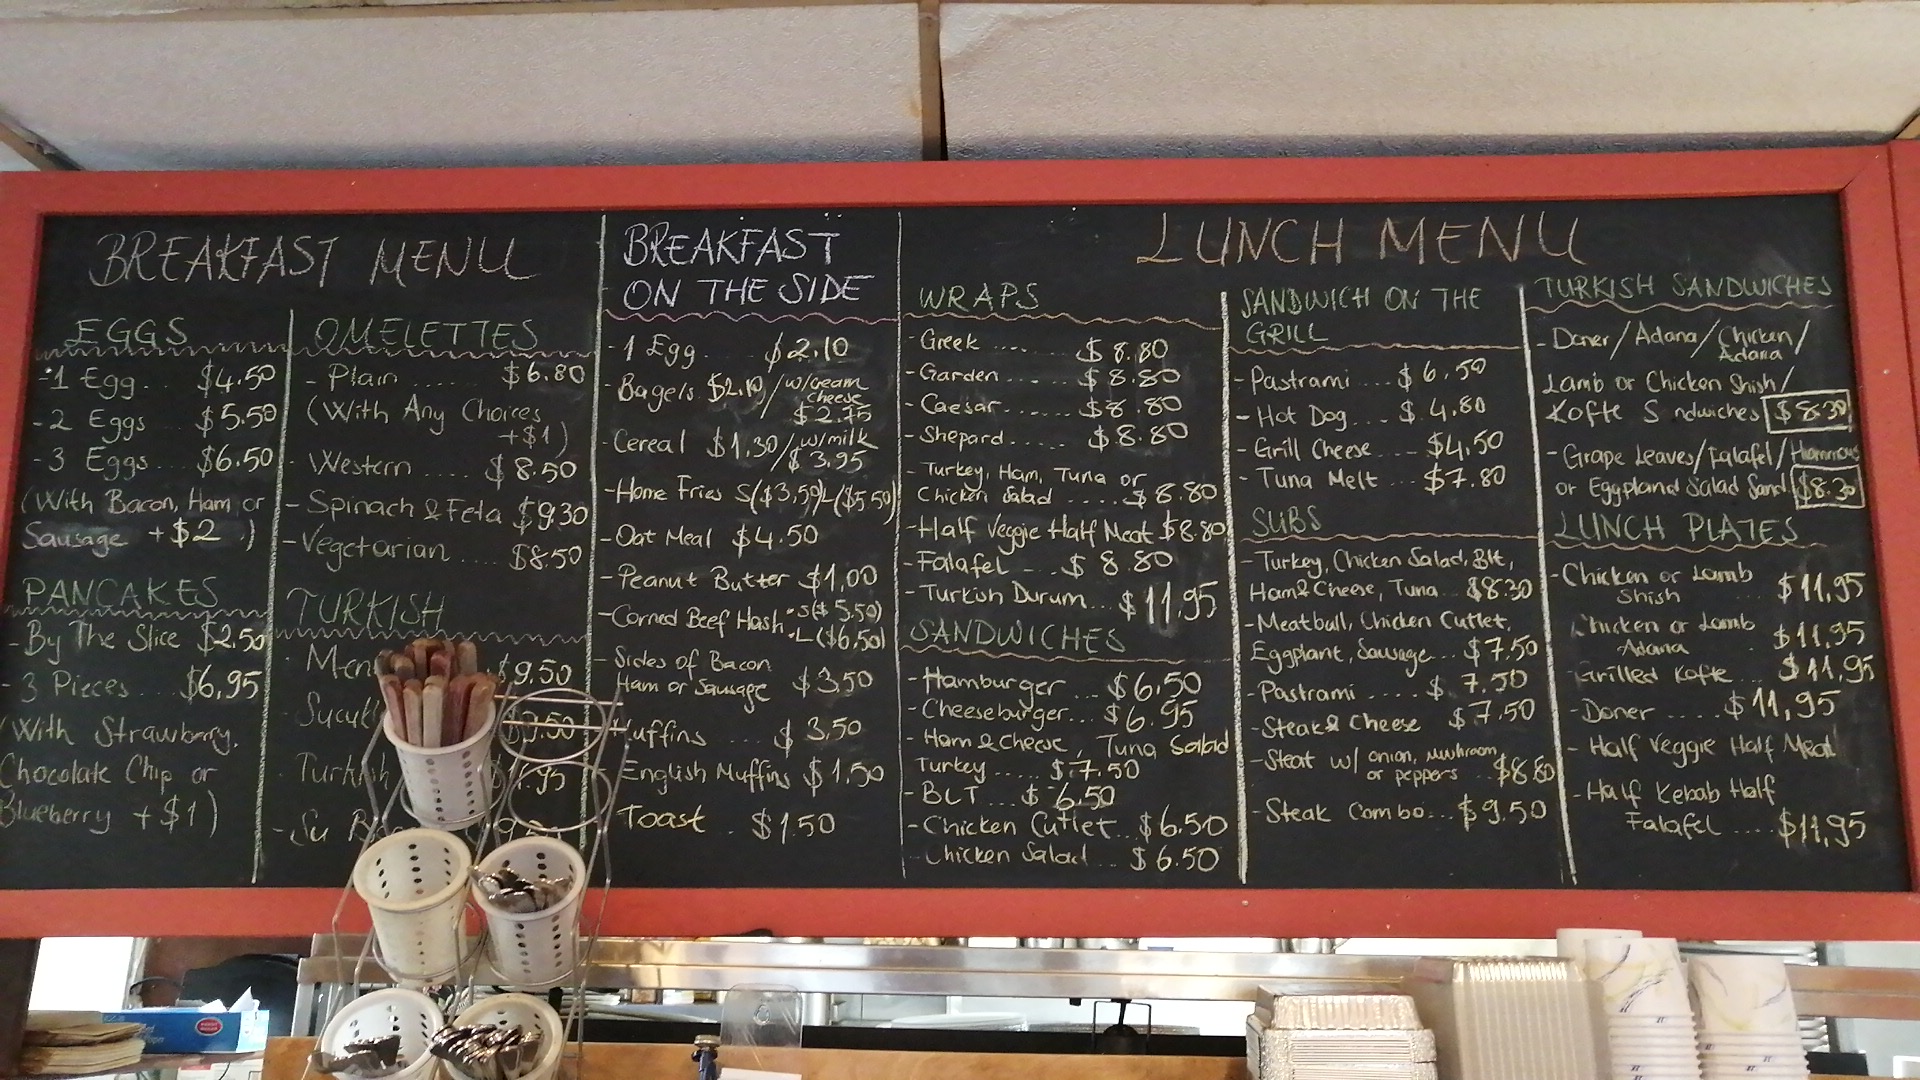 BREAKFAST MENU
EGGS
-1 Egg.. $4.50
-2 Eggs $5.50
-3 Eggs... $6.50
(With Bacon, Ham or
Sausage +$2.)
PANCAKES
-By The Slice $2.50
-3 Pieces... $6,95
(With Strawberry,
Chocolate Chip or
Blueberry +$1)
OMELETTES
-Plain ...... $6.80
(With Any Choices
+$1)
Western .... $8.50
-Spinach & Feta $9.30
-Vegetarian .... $8.50
TURKISH
$9.50
BREAKFAST
ON THE SIDE
-1 Egg.. $2.10
-Bagels $2.10/w/cream
cheese
$2.75
-Cereal $1,30/w/milk
$3.95
-Home Fries S($3,50)L($5.50)
-Oat Meal $4.50
-Peanut Butter $1,00
-Corned Beef Hash •S($5,50)
•L($6,50)
-Sides of Bacon
Ham or Sausage $3.50
Muffins ... $3.50
English Muffins $1.50
Toast .. $1.50
LUNCH MENU
WRAPS
-Greek .... .. $8.80
-Garden..... $8.80
-Caesar...... $8.80
-Shepard..... $8.80
-Turkey, Ham, Tuna or
Chicken Salad .... $8.80
-Half Veggie Half Meat $8.80
-Falafel --. $8.80
-Turkish Durum... $11.95
SANDWICHES
-Hamburger ... $6.50
-Cheeseburger... $6.95
-Ham & Cheese, Tuna Salad
Turkey..... $7.50
-BLT ... $6.50
-Chicken Cutlet.. $6.50
-Chicken Salad... $6.50
SANDWICH ON THE
GRILL
-Pastrami ... $6.50
-Hot Dog... $4.80
-Grill Cheese.... $4,50
-Tuna Melt .. $7.80
SUBS
-Turkey, Chicken Salad, Blt,
Ham & Cheese, Tuna... $8.30
-Meatball, Chicken Cutlet,
Eggplant, Sausage... $7.50
-Pastrami .... $7.50
-Steak & Cheese $7.50
-Steat w/ onion, mushroom
or peppers ... $8.80
-Steak Combo... $9.50
TURKISH SANDWICHES
-Doner/Adana/Chicken/
Adana
Lamb or Chicken Shish/
Kofte S ndwiches $8.30
-Grape Leaves/Falafel/Hummus
or Eggpland Salad Sand $8.30
LUNCH PLATES
-Chicken or Lamb
Shish ... $11,95
Chicken or Lamb
Adana .. $11,95
Grilled Kofte... $11,95
-Doner .... $11,95
-Half Veggie Half Meat
-Half Kebab Half
Falafel .... $11,95